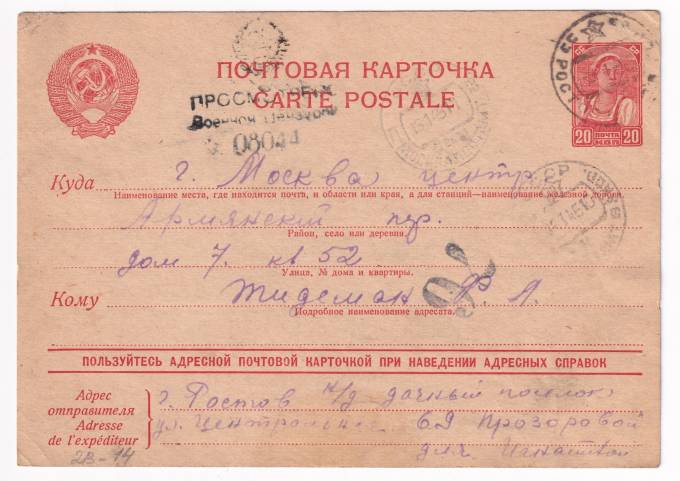 ПОЧТОВАЯ КАРТОЧКА
CARTE POSTALE
ПРОСМОТРЕНО
Военной Цензурой
08044
20 ПОЧТА 20
КОП
Куда
г. Москва центр.
Наименование места, где находится почта, и области или края, а для станций—наименование железной дороги.
Армянский пер.
Район, село или деревня.
дом 7. кв 52
Улица, № дома и квартиры.
Кому
Тидеман Ф. А.
Подробное наименование адресата.
ПОЛЬЗУЙТЕСЬ АДРЕСНОЙ ПОЧТОВОЙ КАРТОЧКОЙ ПРИ НАВЕДЕНИИ АДРЕСНЫХ СПРАВОК
Адрес отправителя
Adresse de l'expéditeur
г. Ростов н/д дачный поселок
ул. Центральная 69 Прозоровой
для
2В-14